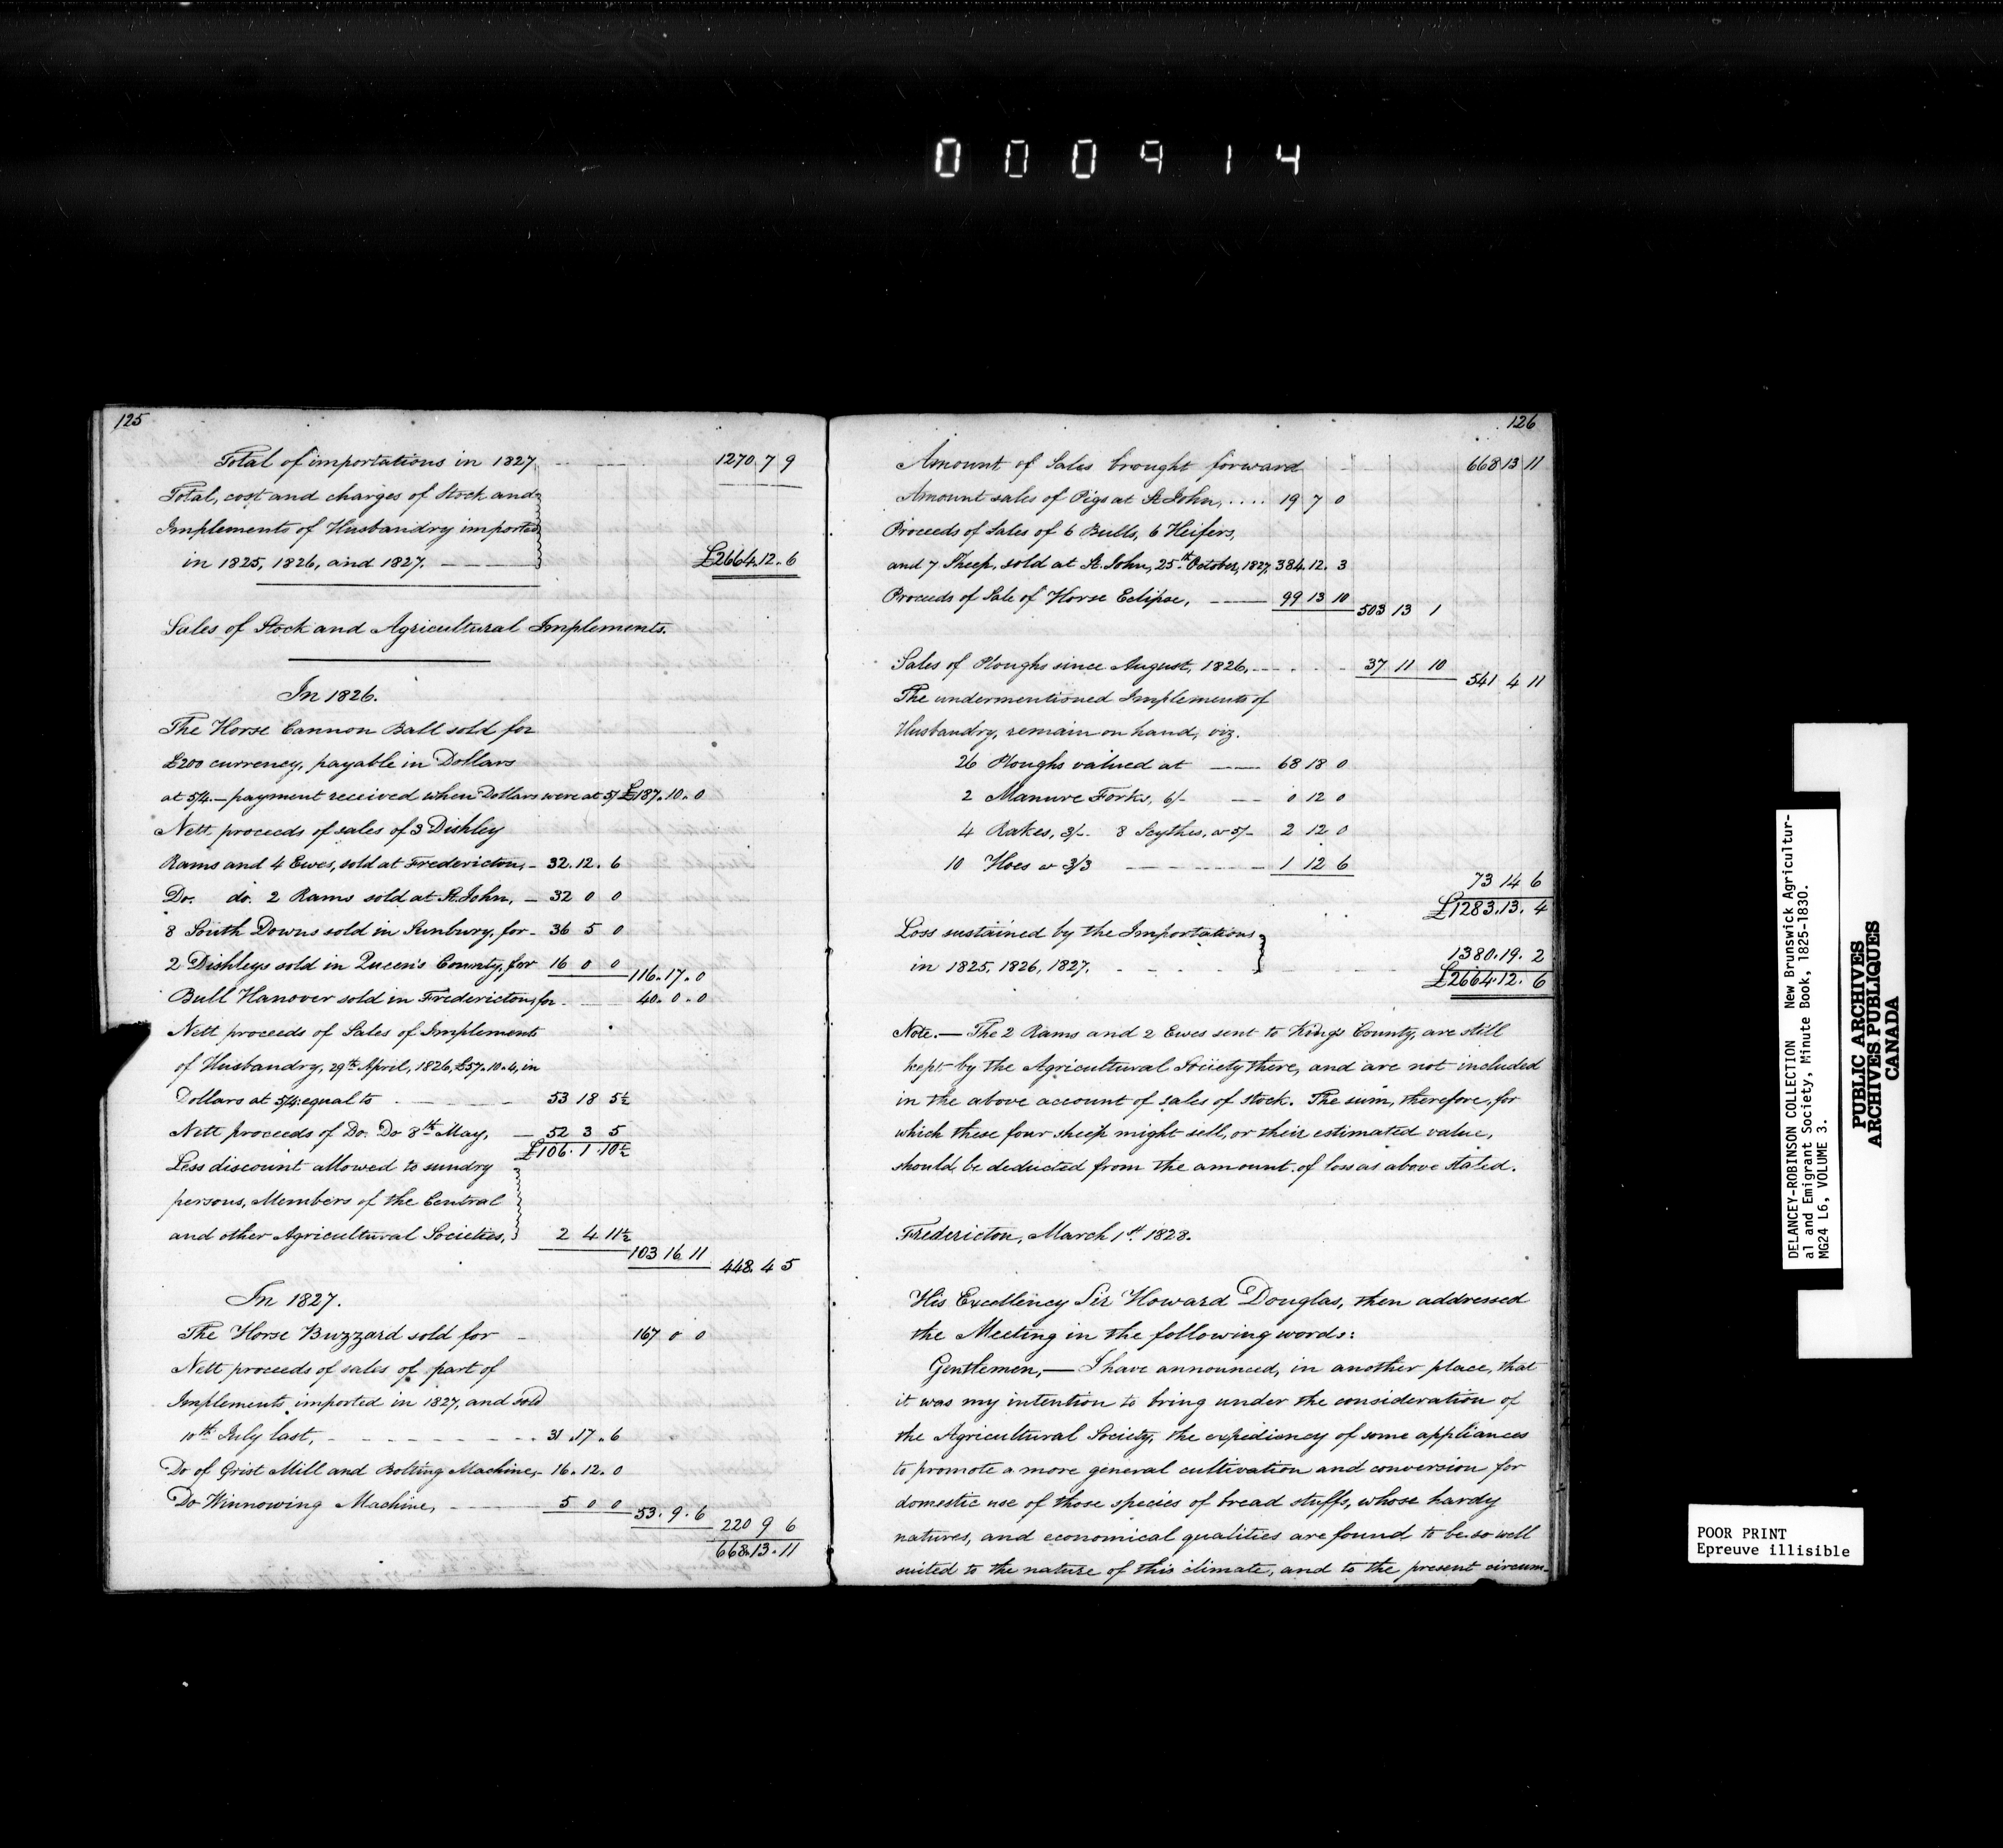 000914
125
Total of importations in 1827, 1270 7 9
Total, cost and charges of Stock and
Implements of Husbandry imported
in 1825, 1826, and 1827. £2664.12.6
Sales of Stock and Agricultural Implements.
In 1826.
The Horse Cannon Ball sold for
£200 currency, payable in Dollars
at 5/4.— payment received when Dollars were at 5/ £187.10.0
Nett proceeds of sales of 3 Dishley
Rams and 4 Ewes, sold at Fredericton, — 32.12.6
Do. do. 2 Rams sold at St. John, — 32 0 0
8 South Downs sold in Sunbury, for — 36 5 0
2 Dishleys sold in Queen's County, for 16 0 0
116.17.0
Bull Hanover sold in Fredericton for 40.0.0
Nett proceeds of Sales of Implements
of Husbandry, 29th April, 1826, £57.10.4, in
Dollars at 5/4 equal to 53 18 5½
Nett proceeds of Do. Do 8th May, — 52 3 5
£106.1.10½
Less discount allowed to sundry
persons, Members of the Central
and other Agricultural Societies, 2 4 11½
103 16 11
448.4 5
In 1827.
The Horse Buzzard sold for — 167 0 0
Nett proceeds of sales of part of
Implements imported in 1827, and sold
10th July last, 31.17.6
Do of Grist Mill and Bolting Machine, 16.12.0
Do Winnowing Machine, 5 0 0
53.9.6
220 9 6
668.13.11
126
Amount of Sales brought forward 668 13 11
Amount sales of Pigs at St. John, .... 19 7 0
Proceeds of Sales of 6 Bulls, 6 Heifers,
and 7 Sheep, sold at St. John, 25th October, 1827, 384.12.3
Proceeds of Sale of Horse Eclipse, — 99 13 10
503 13 1
Sales of Ploughs since August, 1826, 37 11 10
541 4 11
The undermentioned Implements of
Husbandry, remain on hand, viz.
26 Ploughs valued at — 68 18 0
2 Manure Forks, 6/- — 0 12 0
4 Rakes, 3/- 8 Scythes, a 5/- 2 12 0
10 Hoes a 3/3 1 12 6
73 14 6
£1283.13.4
Loss sustained by the Importations
in 1825, 1826, 1827. 1380.19.2
£2664.12.6
Note.— The 2 Rams and 2 Ewes sent to King's County, are still
kept by the Agricultural Society there, and are not included
in the above account of sales of stock. The sum, therefore, for
which these four sheep might sell, or their estimated value,
should be deducted from the amount of loss as above stated.
Fredericton, March 1st 1828.
His Excellency Sir Howard Douglas, then addressed
the Meeting in the following words:
Gentlemen,— I have announced, in another place, that
it was my intention to bring under the consideration of
the Agricultural Society, the expediency of some appliances
to promote a more general cultivation and conversion for
domestic use of those species of bread stuffs, whose hardy
natures, and economical qualities are found to be so well
suited to the nature of this climate, and to the present circum-
DELANCEY-ROBINSON COLLECTION New Brunswick Agricultur-
al and Emigrant Society, Minute Book, 1825-1830.
MG24 L6, VOLUME 3.
PUBLIC ARCHIVES
ARCHIVES PUBLIQUES
CANADA
POOR PRINT
Epreuve illisible